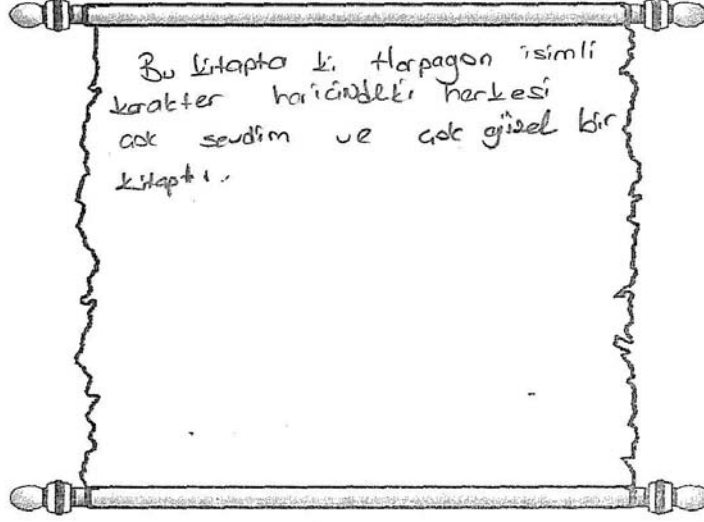 Bu kitapta ki Harpagon isimli
karakter haricindeki herkesi
çok sevdim ve çok güzel bir
kitaptı.